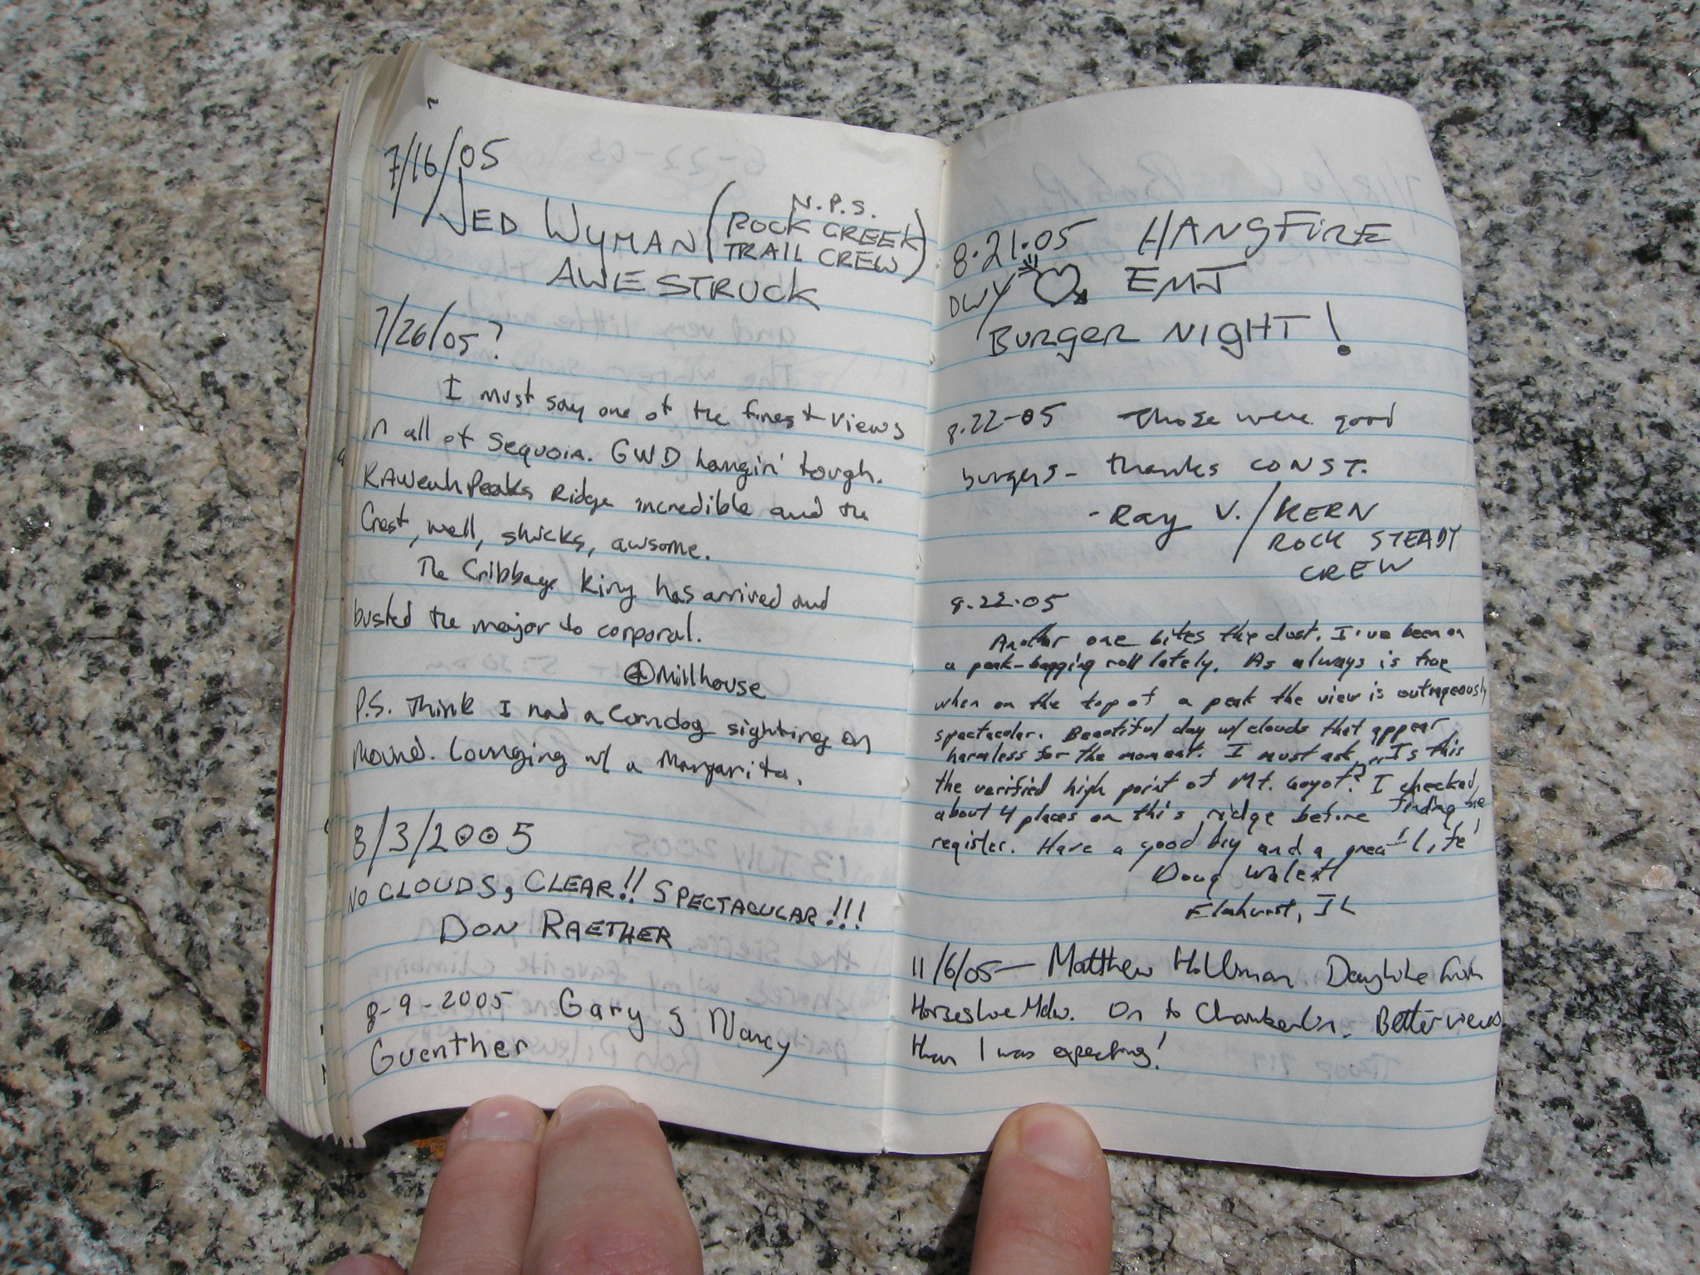 7/16/05
JED WYMAN (N.P.S.
ROCK CREEK
TRAIL CREW)
AWESTRUCK
7/26/05?
I must say one of the finest views
in all of Sequoia. GWD hangin' tough.
Kaweah Peaks Ridge incredible and the
Crest, well, shucks, awsome.
The Cribbage King has arrived and
busted the major to corporal.
Millhouse
P.S. Think I had a Corndog sighting on
Mound. Lounging w/ a Margarita.
8/3/2005
NO CLOUDS, CLEAR!! SPECTACULAR!!!
DON RAETHER
8-9-2005 Gary & Nancy
Guenther
8.21.05 HANGFIRE
DWY EMT
BURGER NIGHT!
8.22-05 Those were good
burgers - thanks CONST.
-Ray V. / KERN
ROCK STEADY
CREW
9.22.05
Another one bites the dust. I've been on
a peak-bagging roll lately. As always is true
when on the top of a peak the view is outrageously
spectacular. Beautiful day w/ clouds that appear
harmless for the moment. I must ask, "Is this
the verified high point of Mt. Guyot?" I checked
about 4 places on this ridge before finding the
register. Have a good day and a great life!
Doug
Elmhurst, IL
11/6/05 - Matthew Holliman Dayhike from
Horseshoe Mdw. On to Chamberlin. Better views
than I was expecting!